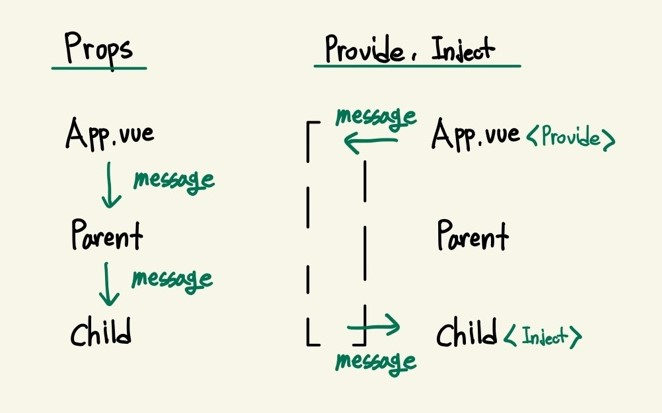 Props
App.vue
message
Parent
message
Child
Provide, Inject
message
App.vue <Provide>
Parent
Child <Inject>
message